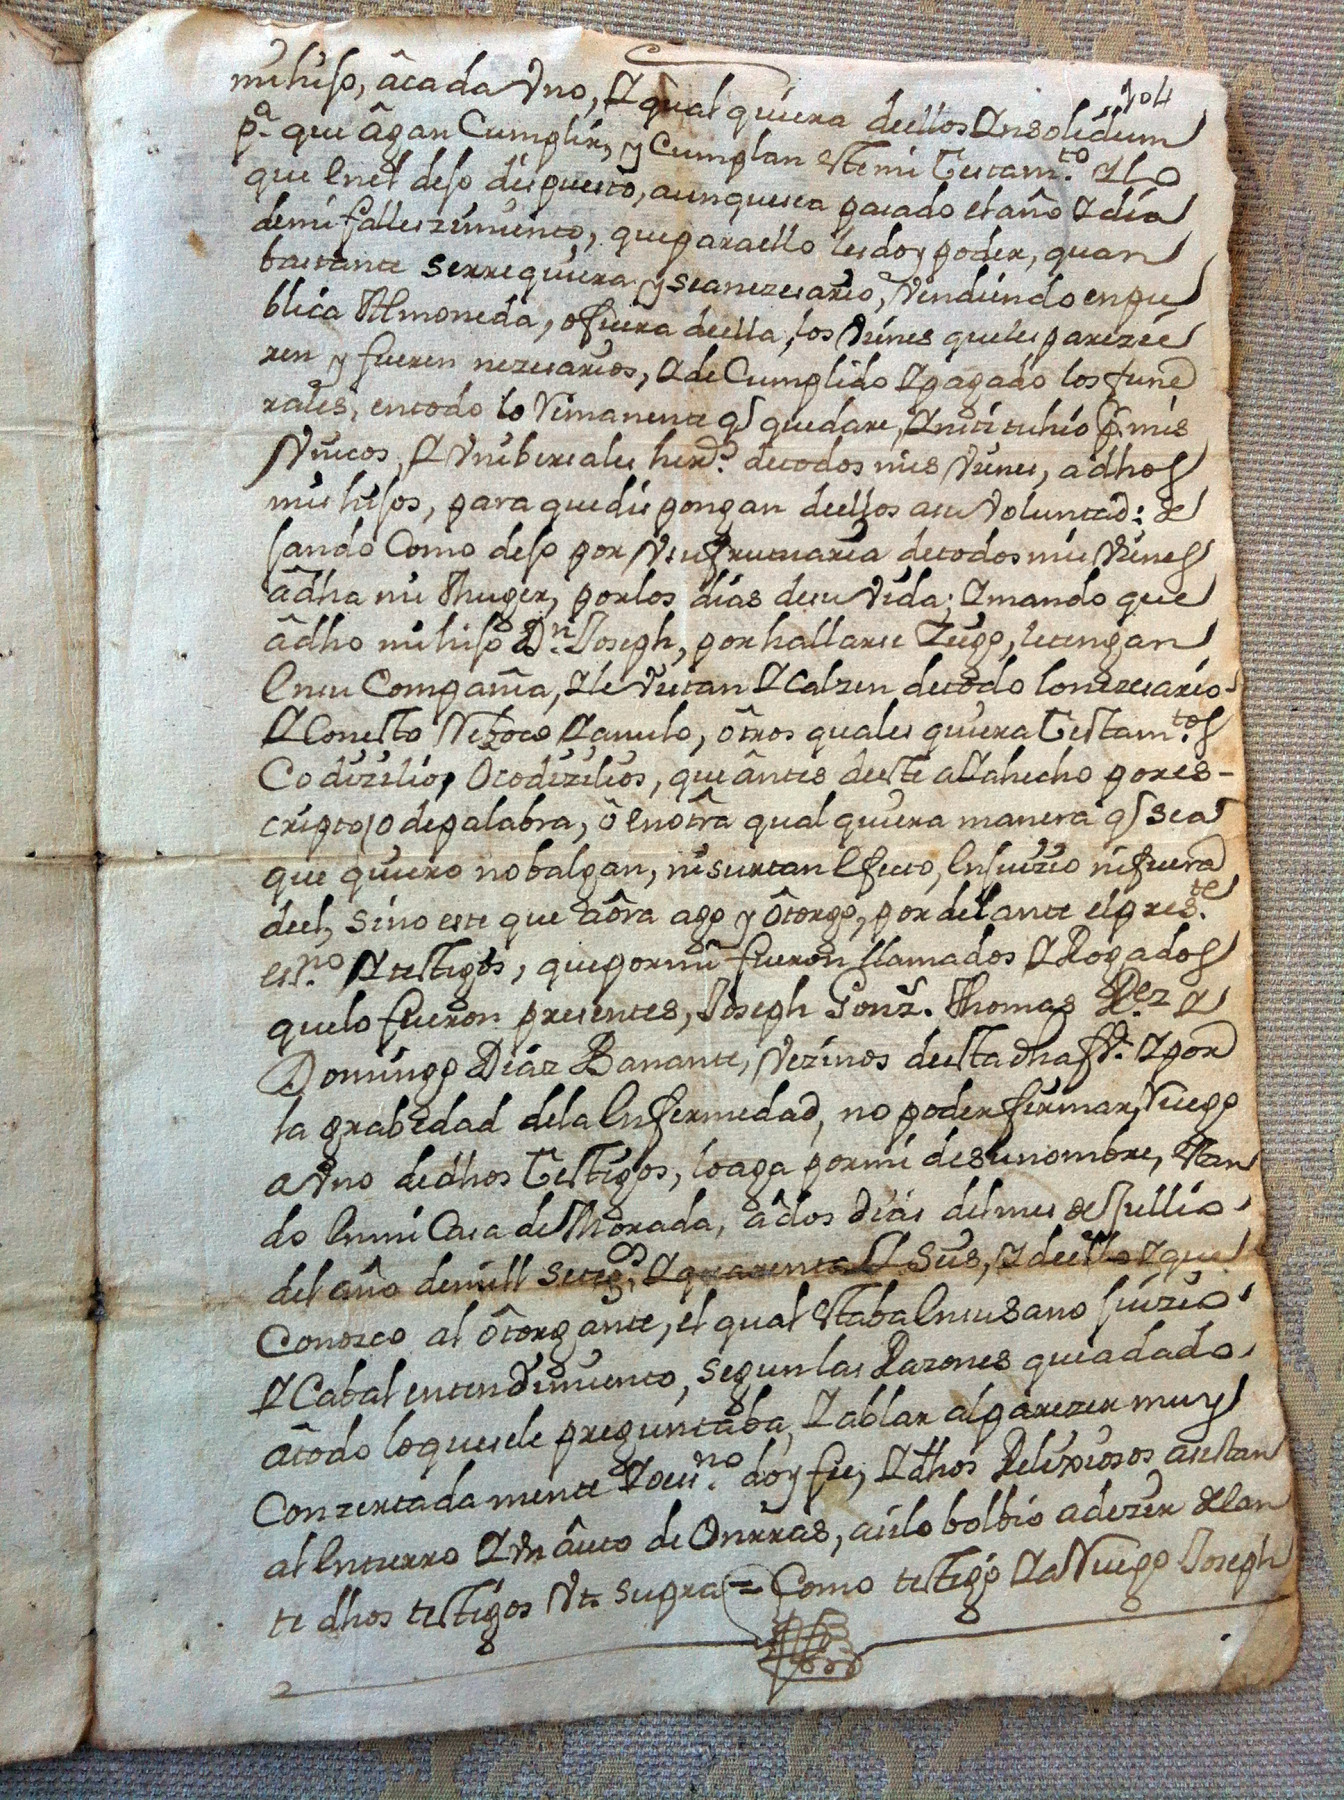 104
mi hiso, â cada Vno, Y qual quiera deellos Ynsolidum
pª. que âgan Cumplir, y Cumplan Este mi Testam.to Y lo
que Enel deso dispuesto, aunquesea pasado el año Y dia
demi falleszimiento, queparaello les doy poder, quan
bastante serrequiera y seanezesario, Vendiendo enpu
blica Almoneda, o fuera deella, los Vienes queles parezie
ren y fueren nezesarios, Y de Cumplido Y pagado los fune
rales, entodo lo Rimanente q̃ quedare, Ynstituhio p.r mis
Vnicos, Y Vnibersales herd.s detodos mis Vienes, a dhos
mis hisos, para quedis pongan deellos asu Voluntad: de
sando Como deso por Vsufrutuaria detodos mis Vienes
â dha mi Muger, porlos dias desu Vida; Y mando que
â dho mi hiso Dn. Joseph, por hallarse Zego, letengan
Ensu Compañia, Y le Vistan Y Calzen detodo lonezesario
Y Conesto Reboco Y anulo, ôtros quales quiera Testam.tos
Codizilio, O codizilios, que ântes deeste aYa hecho pores-
cripto, o depalabra, ô Enotra qual quiera manera q̃ sea
que quiero nobalgan, ni surtan Efecto, Ensuizio nifuera
deel, sino este que aôra ago y ôtorgo, por delante elpres.te
ess.no Y testigos, quepormi fueron llamados Y Rogados
quelo fueron presentes, Joseph Gonz. Thomas Rez Y
Domingo Diaz Banante, Vezinos deesta dha fª. Y por
la grabedad dela Enfermedad, no poder firmar, Ruego
a Vno dedhos Testigos, loaga pormi desunombre, Estan
do Enmi Casa de Morada, â dos dias delmes de Jullio
del año demill seteg.os Y quarenta Y Seis, Y deello Y que
Conozco al ôtorgante, el qual Estaba Ensusano suizio
Y Cabal entendimiento, segunlas Razones quea dado
âtodo loquesele preguntaba, Y ablar alparezer muy
Conzertadamente Yo ess.no doy fee, Y dhos Relixiosos asistan
al Enterro Y Vn âuto de Onrras, asilo bolbio adezir delan
te dhos testigos Vt supra = Como testigo Y a Ruego Joseph